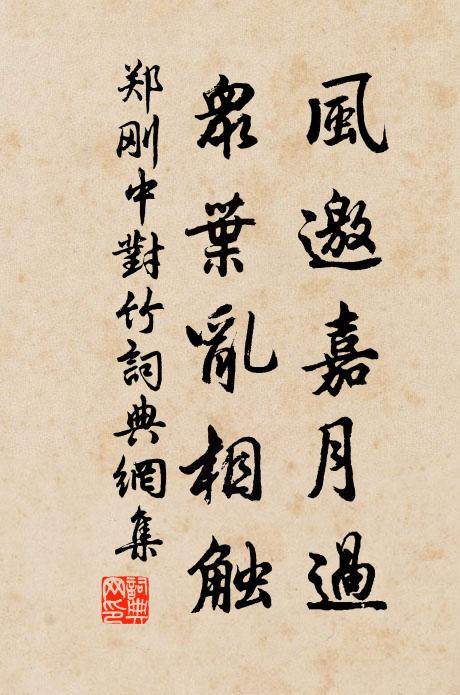 風邀嘉月過
眾葉亂相触
郑刚中對竹詞典網集
詞典网印